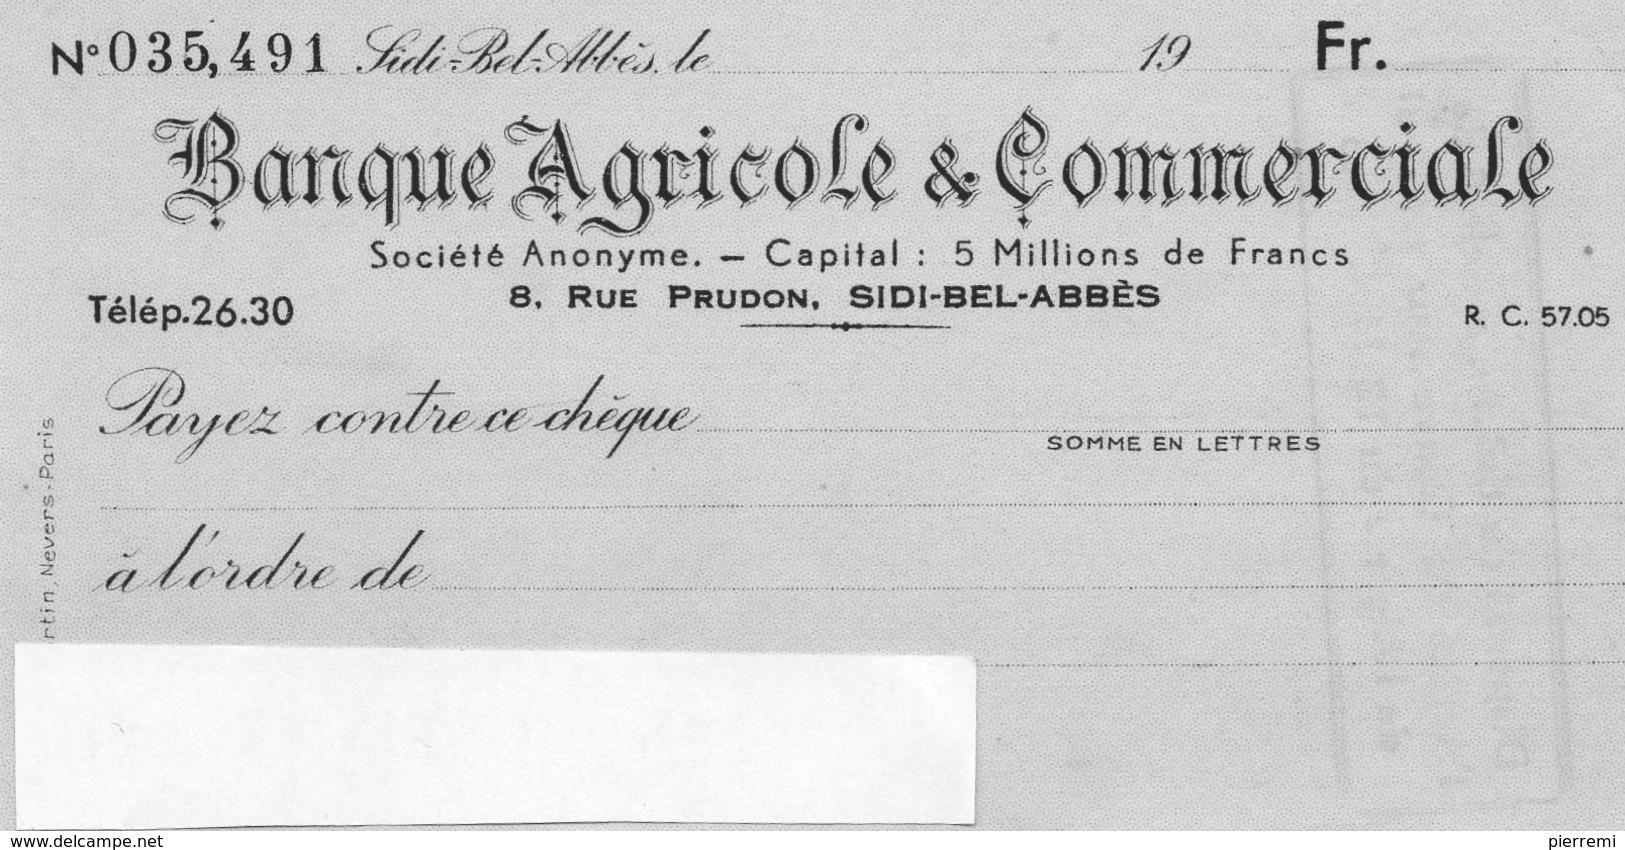 N° 035,491 Sidi-Bel-Abbès, le 19 Fr.
Banque Agricole & Commerciale
Société Anonyme. — Capital : 5 Millions de Francs
8, RUE PRUDON, SIDI-BEL-ABBÈS
Télép. 26.30
R. C. 57.05
Payez contre ce chèque
SOMME EN LETTRES
à l'ordre de
rtin, Nevers-Paris
www.delcampe.net
pierremi